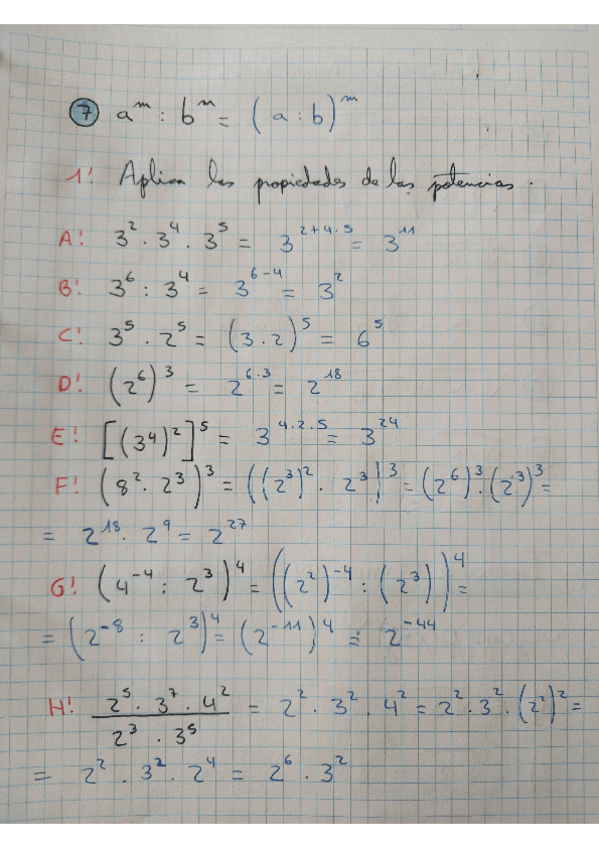 7 aᵐ : bᵐ = (a : b)ᵐ
1! Aplica las propiedades de las potencias.
A! 3² · 3⁴ · 3⁵ = 3^(2+4·5) = 3¹¹
B! 3⁶ : 3⁴ = 3⁶⁻⁴ = 3²
C! 3⁵ · 2⁵ = (3 · 2)⁵ = 6⁵
D! (2⁶)³ = 2^(6·3) = 2¹⁸
E! [(3⁴)²]⁵ = 3^(4·2·5) = 3²⁴
F! (8² · 2³)³ = ((2³)² · 2³)³ = (2⁶)³ · (2³)³ =
= 2¹⁸ · 2⁹ = 2²⁷
G! (4⁻⁴ : 2³)⁴ = ((2²)⁻⁴ : (2³))⁴ =
= (2⁻⁸ : 2³)⁴ = (2⁻¹¹)⁴ = 2⁻⁴⁴
H! (2⁵ · 3⁷ · 4²) / (2³ · 3⁵) = 2² · 3² · 4² = 2² · 3² · (2²)² =
= 2² · 3² · 2⁴ = 2⁶ · 3²